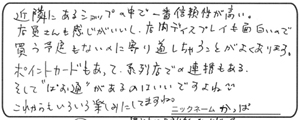 近隣にあるショップの中で一番信頼性が高い。
店員さんも感じがいいし、店内ディスプレイも面白いので
買う予定もないのに寄り道しちゃうことがよくあります。
ポイントカードもあって、系列店での連携もある。
そして"ぱお通"があるのはいいですよね〜
これからもいろいろ楽しみにしてますね。
ニックネーム かっぱ